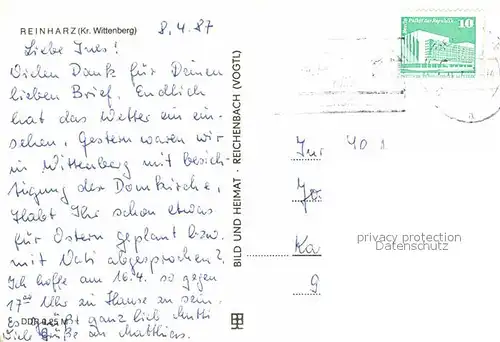 REINHARZ (Kr. Wittenberg)
8.4.87
Liebe Ines!
Vielen Dank für Deinen
lieben Brief. Endlich
hat das Wetter ein ein-
sehen. Gestern waren wir
in Wittenberg mit besich-
tigung der Domkirche,
Habt Ihr schon etwas
für Ostern geplant bzw.
mit Vati abgesprochen?
Ich hoffe am 16.4. so gegen
17⁰⁰ Uhr zu Hause zu sein.
Es grüßt ganz lieb Mutti
Viele Grüße an Matthias.
DDR 0,25 M
BILD UND HEIMAT · REICHENBACH (VOGTL)
10
40
Ka
9
privacy protection
Datenschutz